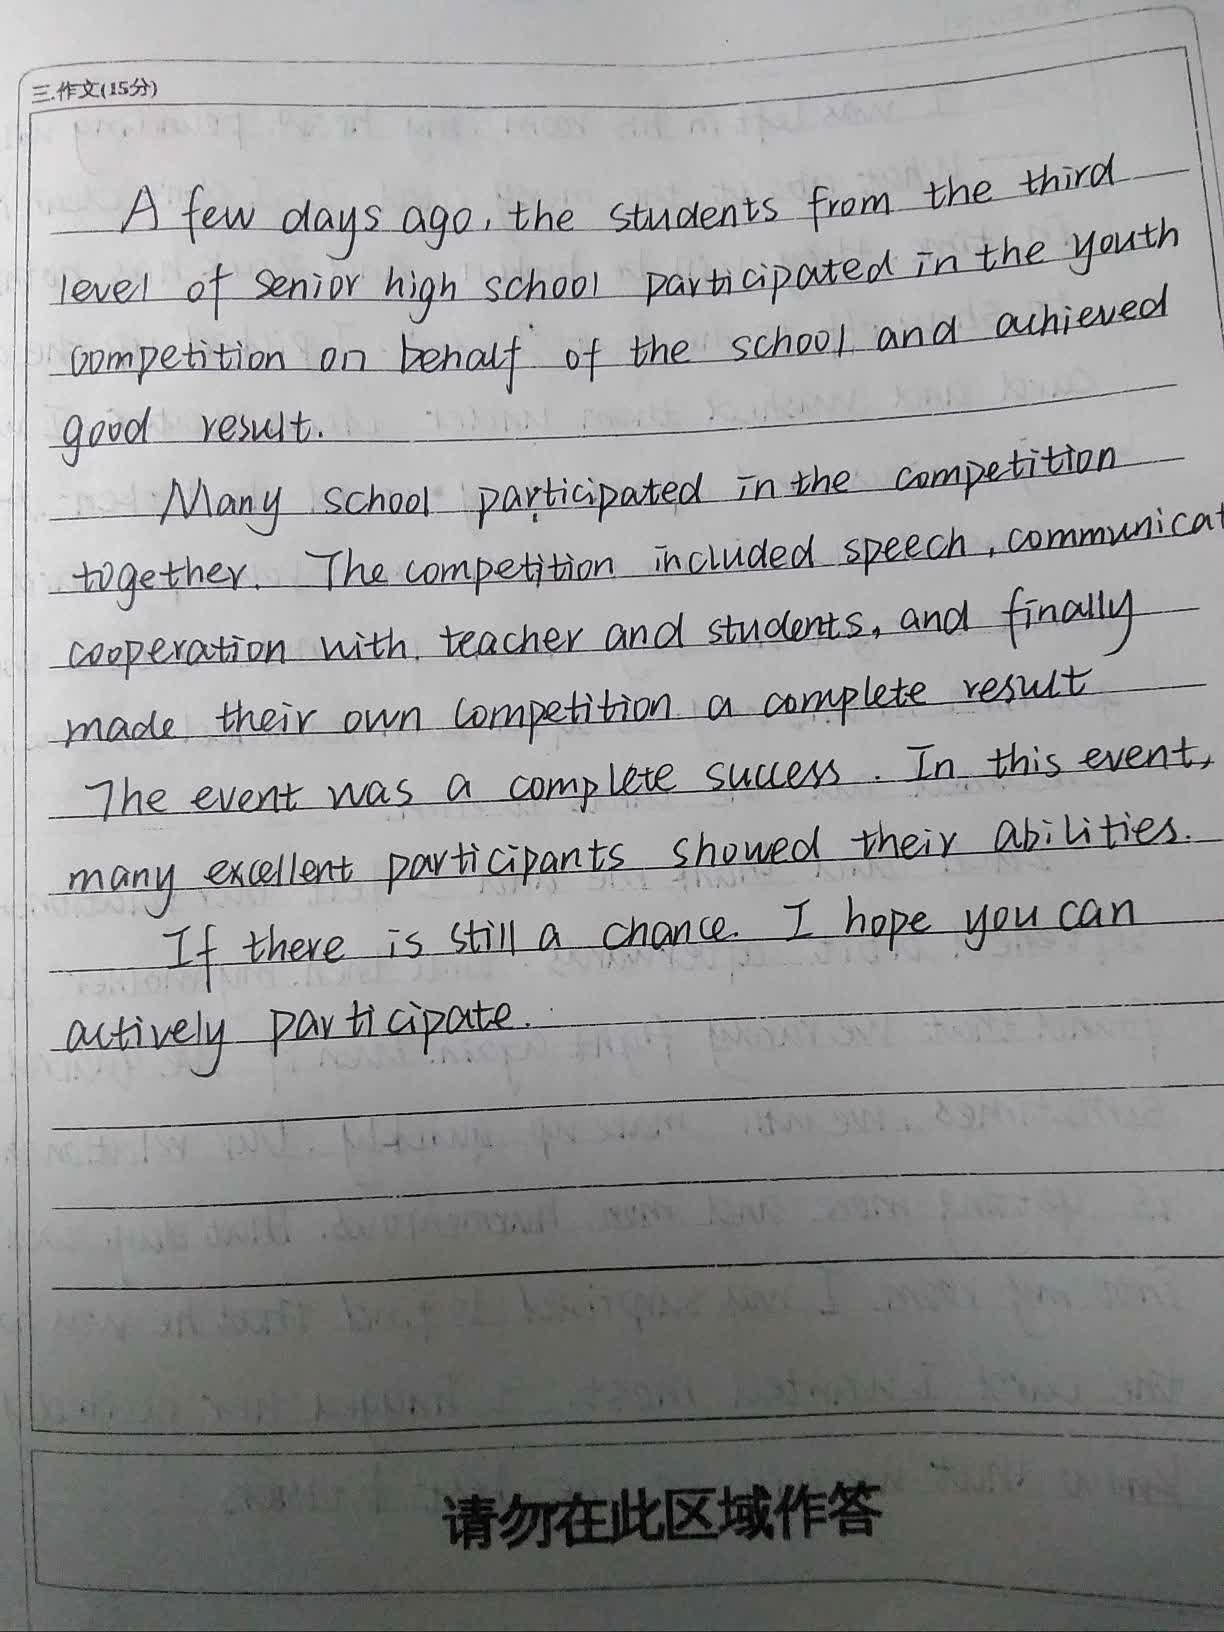 三.作文(15分)
A few days ago, the students from the third
level of senior high school participated in the youth
competition on behalf of the school and achieved
good result.
Many school participated in the competition
together. The competition included speech, communicat
cooperation with teacher and students, and finally
made their own competition a complete result
The event was a complete success. In this event,
many excellent participants showed their abilities.
If there is still a chance. I hope you can
actively participate.
请勿在此区域作答